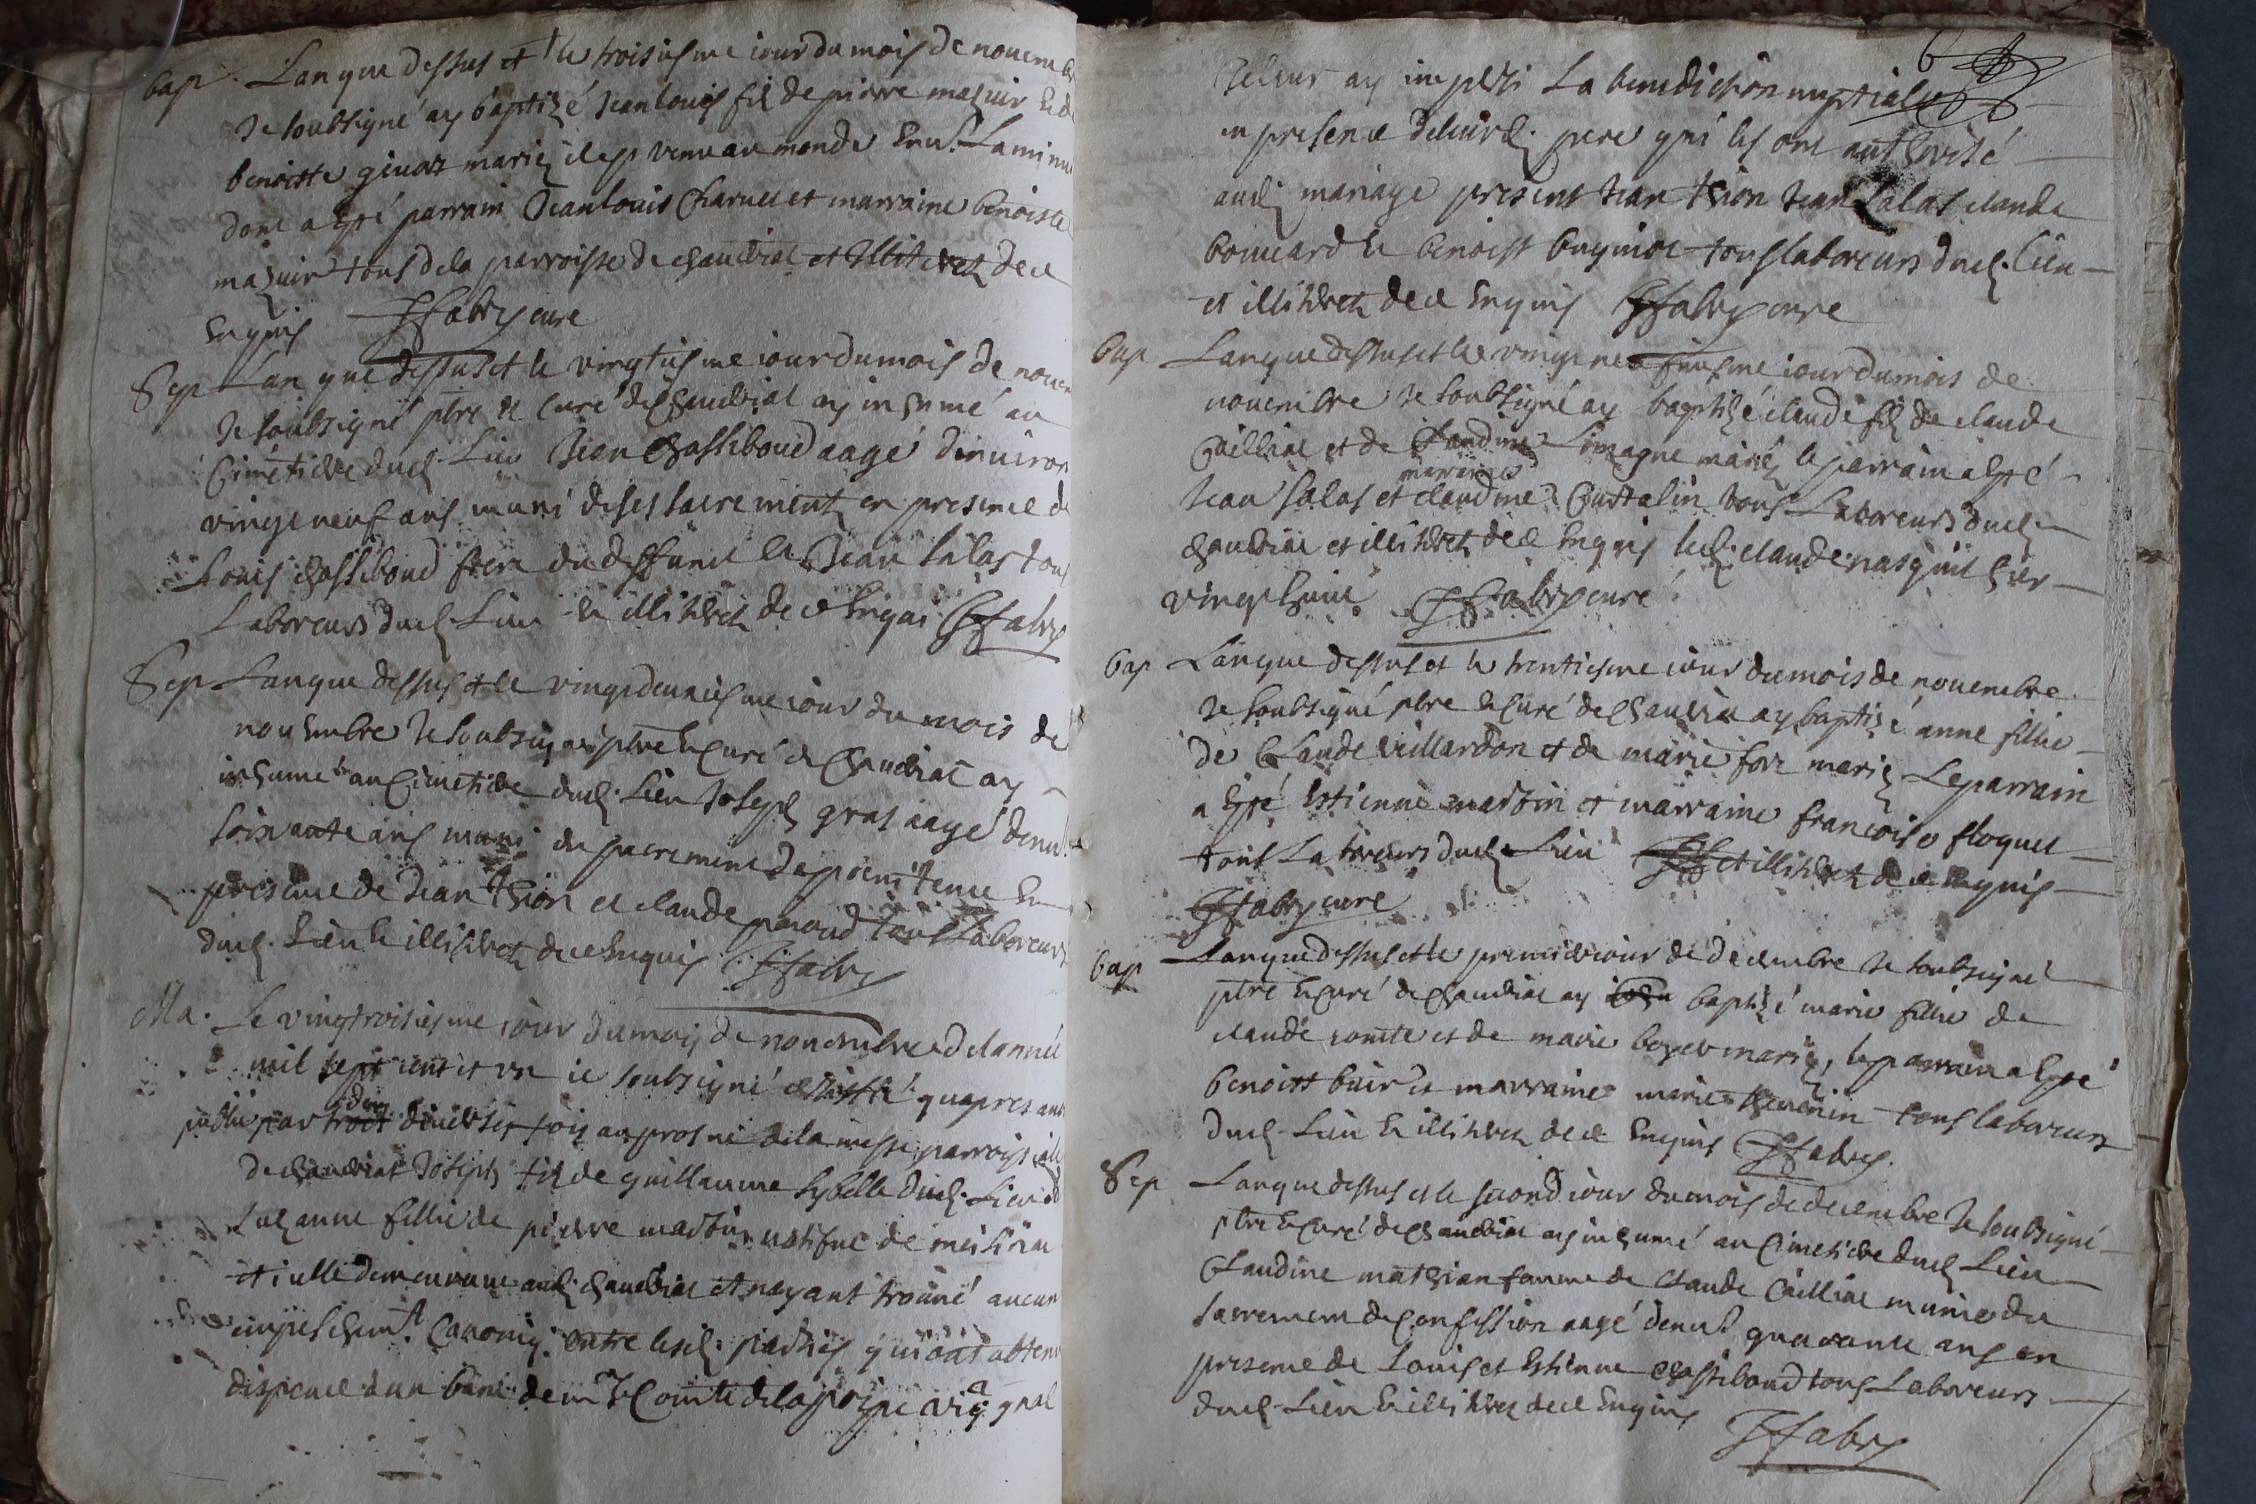 bap. Lan que dessus et le troisiesme iour du mois de novemb
Je soubsigné ay baptizé Jean louis fil de pierre maznir et d
benoiste givor mariez il est venu au monde
dont a esté parrain Jean louis Charvet et marraine benoiste
maznir tous de la parroisse de chaudiat et illiterez de ce
enquis JFabry curé
Sep Lan que dessus et le vingtiesme iour du mois de novem
Je soubsigné ptre et curé de Chaudiat ay inhumé au
Cimetiere dud. Lieu Jean Chassiboud aagé d'environ
vingt neuf ans muni de ses sacrement en presence de
Louis chassiboud frere du deffunct et Jean salas tous
Laboreurs dud. Lieu et illiterez de ce Enquis JFabry
Sep Lan que dessus et le vingt deuxiesme iour du mois de
novembre Je soubsigné ptre et Curé de Chaudiat ay
inhumé au Cimetiere dud. Lieu Joseph gras aagé denv.
soixante ans muni du sacrement de penitence En
presence de Jean thion et claude peroud tous Laboreurs
dud. Lieu et illiterez de ce Enquis JFabry
Ma. Le vingtroisiesme iour du mois de novembre de lannée
mil sept cent et un ie soubsigné atteste qu'apres avoir
publié par deux diverses fois au prosne de la messe parroissialle
de chaudiat Joseph fil de guillaume sybelle dud. Lieu et
Suzanne fillie de pierre martin natifve de
et icelle demeurante aud. chaudiat et n'ayant trouvé aucun
empeschemt. Canoniq. entre lesd. parties qui ont obtenu
dispence d'un banc de mr. Le Comte de la poipe vic. gnal
6
Je leurs ay imparti La benediction nuptiale
en presence de leurs. pere qui les ont authorisé
aud. mariage present Jean thion Jean Salas claude
bouvard et benoist buynior tous laboreurs dud. Lieu
et illiterez de ce enquis JFabry curé
bap Lan que dessus et le vingt neufiesme iour du mois de
novembre Je soubsigné ay baptizé claude fil de claude
Cailliat et de Claudine Limagne mariez le parrain a esté
marraine
Jean salas et claudine Coustalin tous Laboreurs dud.
chaudiat et illiterez de ce Enquis led. claude nasquit hier
vingt huit JFabry curé
bap Lan que dessus et le trentiesme iour du mois de novembre
Je soubsigné ptre et Curé de Chaudiat ay baptizé anne fillie
de Claude veillardon et de marie fore mariez Le parrain
a esté Estienne martin et marraine francoise floquet
tous Laboreurs dud. Lieu et illiterez de ce enquis
JFabry curé
bap Lan que dessus et le premier iour de decembre Je soubsigné
ptre et Curé de Chaudiat ay baptizé marie fillie de
claude comte et de marie boyer mariez, le parrain a esté
benoist buir et marraine marie thevenin tous laboreurs
dud. Lieu et illiterez de ce Enquis JFabry.
Sep Lan que dessus et le second iour du mois de decembre Je soubsigné
ptre et Curé de Chaudiat ay inhumé au Cimetiere dud. Lieu
Claudine mathian femme de Claude Cailliat munie du
sacrement de Confession aagé denv. quarante ans en
presence de Louis et Estienne chassiboud tous Laboreurs
dud. Lieu et illiterez de ce Enquis
JFabry